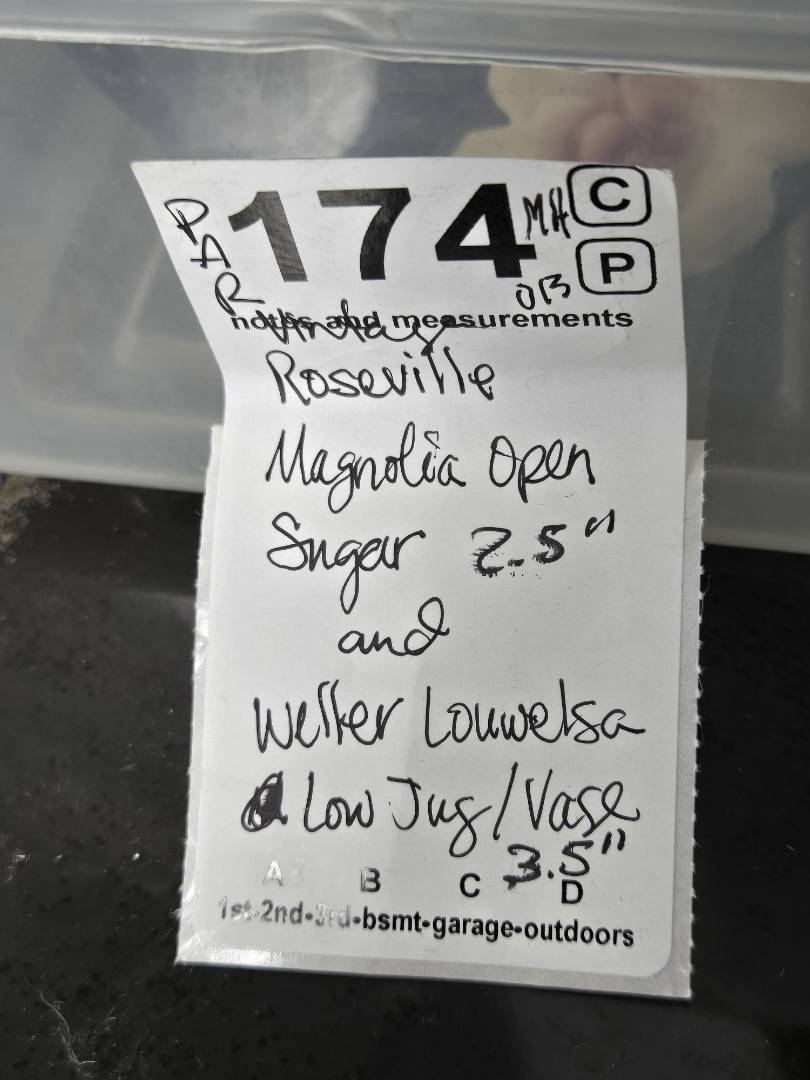 PAR
174
MH
C
P
OB
notes and measurements
Vintage
Roseville
Magnolia Open
Sugar 2.5"
and
Weller Louwelsa
Low Jug/Vase
3.5"
A B C D
1st•2nd•3rd•bsmt•garage•outdoors